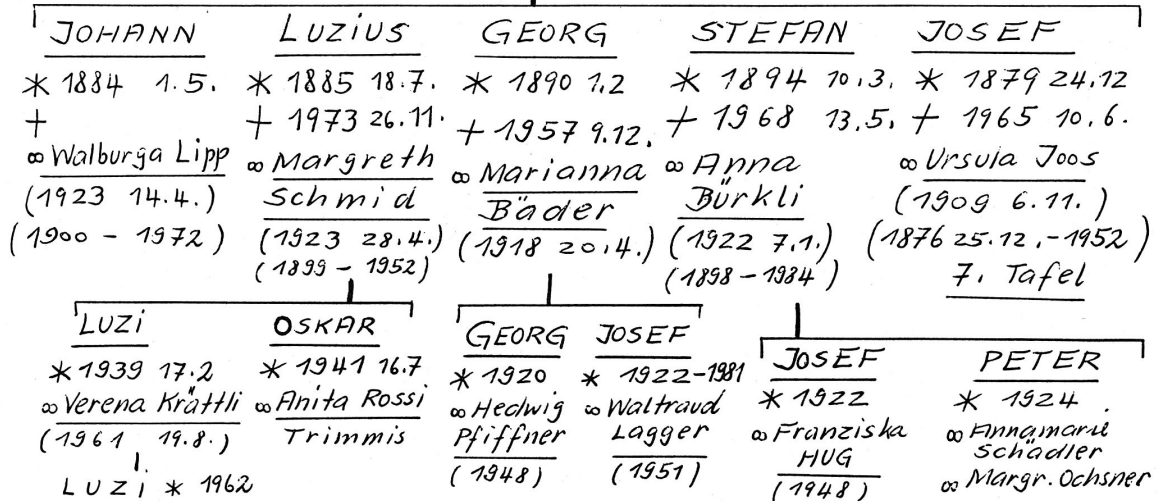 JOHANN
* 1884 1.5.
+
∞ Walburga Lipp
(1923 14.4.)
(1900 - 1972)
LUZIUS
* 1885 18.7.
+ 1973 26.11.
∞ Margreth
Schmid
(1923 28.4.)
(1899 - 1952)
GEORG
* 1890 1.2
+ 1957 9.12.
∞ Marianna
Bäder
(1918 20.4.)
STEFAN
* 1894 10.3.
+ 1968 13.5.
∞ Anna
Bürkli
(1922 7.1.)
(1898 - 1984)
JOSEF
* 1879 24.12
+ 1965 10.6.
∞ Ursula Joos
(1909 6.11.)
(1876 25.12. - 1952)
7. Tafel
LUZI
* 1939 17.2
∞ Verena Krättli
(1961 19.8.)
LUZI * 1962
OSKAR
* 1941 16.7
∞ Anita Rossi
Trimmis
GEORG
* 1920
∞ Hedwig
Pfiffner
(1948)
JOSEF
* 1922-1981
∞ Waltraud
Lagger
(1951)
JOSEF
* 1922
∞ Franziska
HUG
(1948)
PETER
* 1924
∞ Annamarie
Schädler
∞ Margr. Ochsner